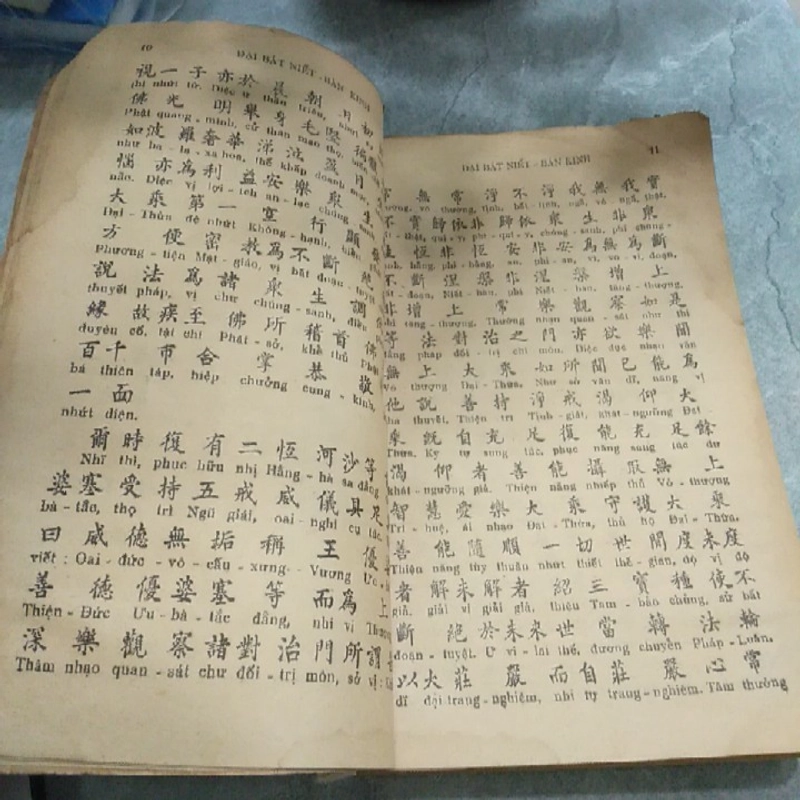 10
ĐẠI BÁT NIẾT - BÀN KINH
視一子亦於晨朝日初
thị nhứt tử. Diệc ư thần triêu, nhựt
佛光明舉身毛豎
Phật quang-minh, cử thân mao thọ,
如波羅奢華涕泣盈目
như ba-la-xa hoa, thế khấp doanh mục,
惱亦為利益安樂眾生
não. Diệc vị lợi-ích an-lạc chúng-sanh,
大乘第一空行顯
Đại-Thừa đệ nhứt không-hạnh, hiển
方便密教為不斷
Phương-tiện Mật-giáo, vị bất đoạn
說法為諸眾生調
thuyết pháp, vị chư chúng-sanh, điều
緣故疾至佛所稽首佛
duyên cố, tật chí Phật-sở, khể thủ Phật
百千帀合掌恭敬
bá thiên táp, hiệp chưởng cung-kính,
一面
nhứt diện.
爾時復有二恆河沙等
Nhĩ thì, phục hữu nhị Hằng-hà sa đẳng
婆塞受持五戒威儀具足
bà-tắc, thọ trì Ngũ giái, oai-nghi cụ túc
曰威德無垢稱王優
viết: Oai-đức-vô-cấu-xưng-Vương Ưu-
善德優婆塞等而為上
Thiện-Đức Ưu-bà-tắc đẳng, nhi vi Thượng
深樂觀察諸對治門所謂
Thâm nhạo quan-sát chư đối-trị môn, sở vị:
11
ĐẠI BÁT NIẾT - BÀN KINH
常無常淨不淨我無我實
vô thường, tịnh, bất-tịnh, ngã, vô ngã, thật,
不實歸依非歸依眾生非眾
thật, qui-y, phi qui-y, chúng-sanh, phi chúng
生恆非恆安非安為無為斷
hằng, phi-hằng, an, phi-an, vi, vô-vi, đoạn,
不斷涅槃非涅槃增上
đoạn, Niết-bàn, phi Niết-bàn, tăng-thượng,
非增上常樂觀察如是
phi tăng-thượng. Thường nhạo quan-sát như thị
等法對治之門亦欲樂聞
đẳng pháp đối-trị chi môn. Diệc dục nhạo văn
無上大乘如所聞已能為
Vô thượng Đại-Thừa. Như sở văn dĩ, năng vị
他說善持淨戒渴仰大
tha thuyết. Thiện trì Tịnh-giái, khát-ngưỡng Đại
乘既自充足復能充足餘
Thừa. Ký tự sung túc, phục năng sung túc dư
渴仰者善能攝取無上
khát-ngưỡng giả. Thiện năng nhiếp thủ Vô-thượng
智慧愛樂大乘守護大乘
Trí-huệ, ái nhạo Đại-Thừa, thủ hộ Đại-Thừa.
善能隨順一切世間度未度
Thiện năng tùy thuận nhứt thiết thế-gian, độ vị độ
者解未解者紹三寶種使不
giả, giải vị giải giả, thiệu Tam-bảo chủng, sử bất
斷絕於未來世當轉法輪
đoạn-tuyệt. Ư vị-lai thế, đương chuyển Pháp-Luân.
以大莊嚴而自莊嚴心常
dĩ đại trang-nghiêm, nhi tự trang-nghiêm. Tâm thường